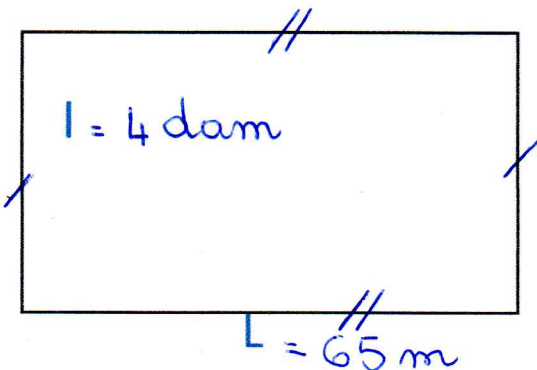 l = 4 dam
L = 65 m